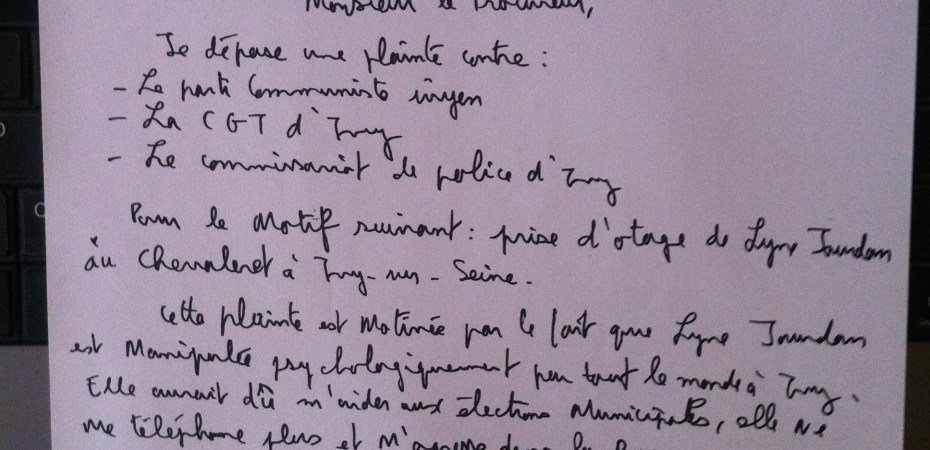 Monsieur le Procureur,
Je dépose une plainte contre :
- Le parti Communiste ivryen
- La CGT d'Ivry
- Le commissariat de police d'Ivry
Pour le Motif suivant : prise d'otage de Lyne Jourdan
au Chevaleret à Ivry-sur-Seine.
Cette plainte est Motivée par le fait que Lyne Jourdan
est Manipulée psychologiquement par tout le monde à Ivry.
Elle aurait dû m'aider aux élections Municipales, elle Ne
me téléphone plus et M'